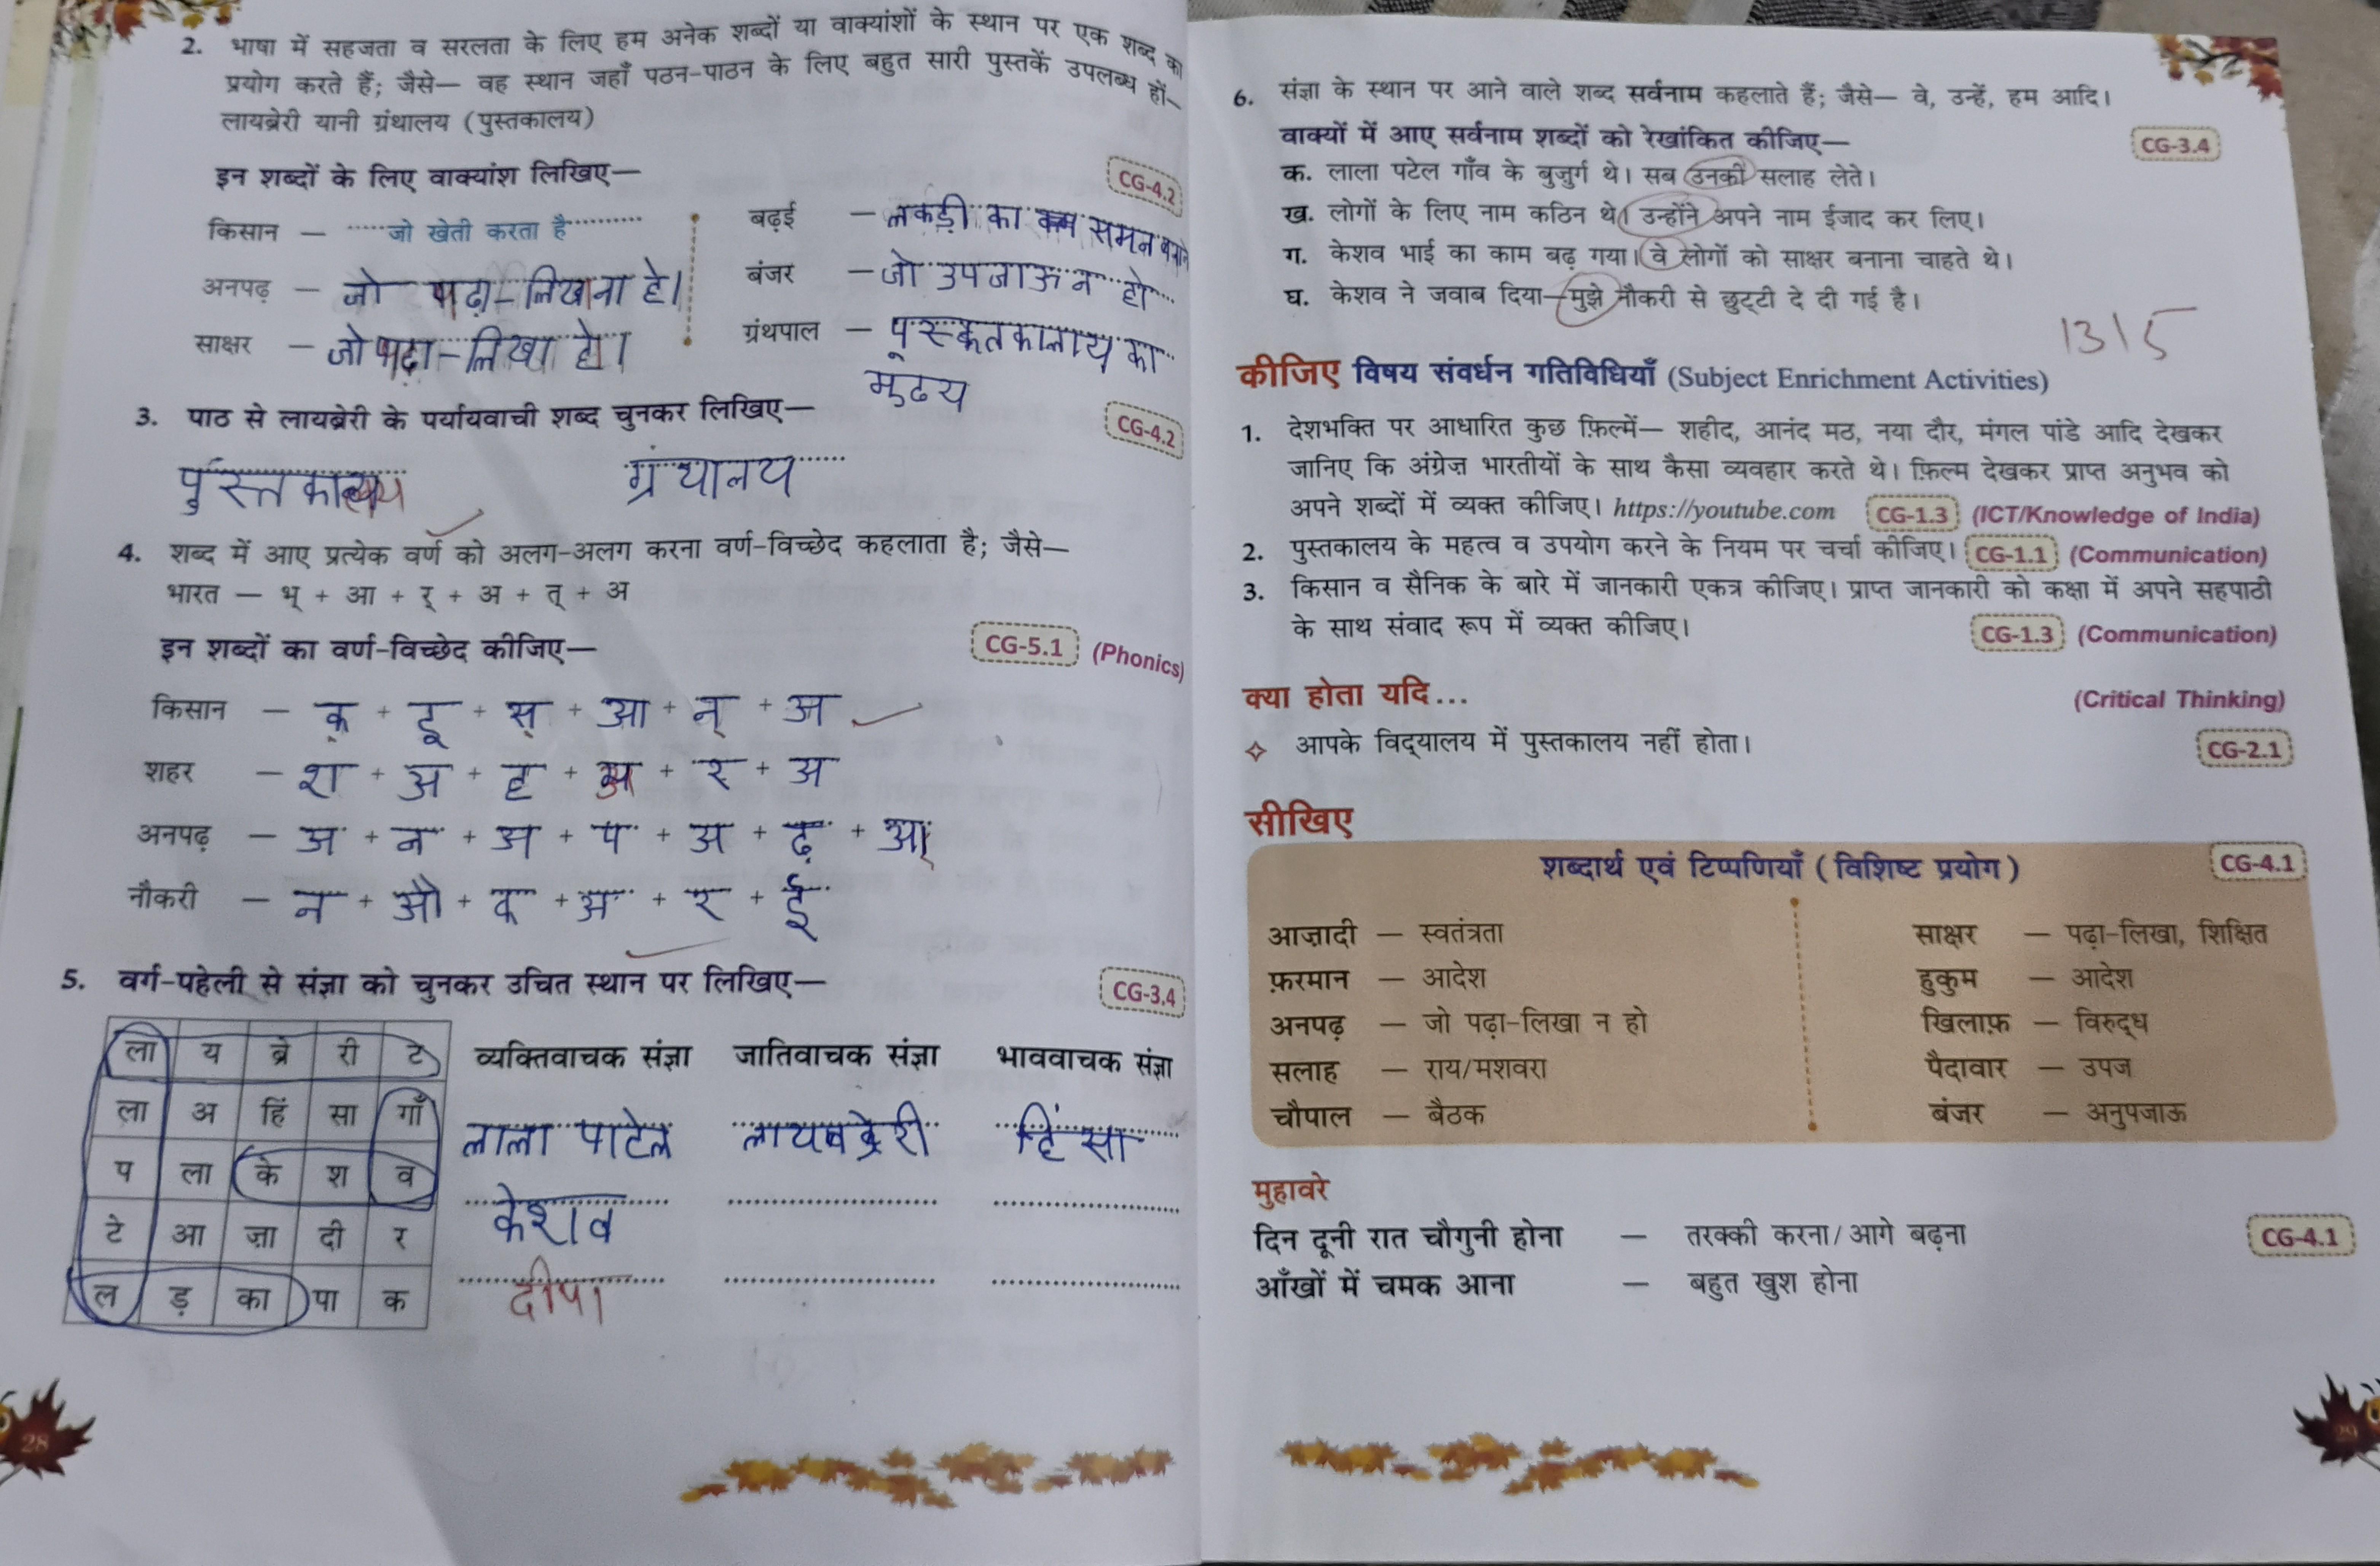 2. भाषा में सहजता व सरलता के लिए हम अनेक शब्दों या वाक्यांशों के स्थान पर एक शब्द का
प्रयोग करते हैं; जैसे— वह स्थान जहाँ पठन-पाठन के लिए बहुत सारी पुस्तकें उपलब्ध हों—
लायब्रेरी यानी ग्रंथालय (पुस्तकालय)
इन शब्दों के लिए वाक्यांश लिखिए— CG-4.2
किसान — जो खेती करता है
बढ़ई — लकड़ी का समन
अनपढ़ — जो पढ़ा-लिखा ना हे।
बंजर — जो उपजाऊ न हो
साक्षर — जो पढ़ा-लिखा हो।
ग्रंथपाल — पूस्कतकालाय का
3. पाठ से लायब्रेरी के पर्यायवाची शब्द चुनकर लिखिए— CG-4.2
पुस्तकालय ग्रंथालय
4. शब्द में आए प्रत्येक वर्ण को अलग-अलग करना वर्ण-विच्छेद कहलाता है; जैसे—
भारत — भ् + आ + र् + अ + त् + अ
इन शब्दों का वर्ण-विच्छेद कीजिए— CG-5.1 (Phonics)
किसान — क् + इ + स् + आ + न् + अ
शहर — श + अ + ह + अ + र + अ
अनपढ़ — अ + न + अ + प + अ + ढ़ + अ
नौकरी — न + औ + क + अ + र + ई
5. वर्ग-पहेली से संज्ञा को चुनकर उचित स्थान पर लिखिए— CG-3.4
व्यक्तिवाचक संज्ञा जातिवाचक संज्ञा भाववाचक संज्ञा
ला य ब्रे री टे
ला अ हिं सा गाँ
प ला के श व
टे आ ज़ा दी र
ल ड़ का पा क
लाला पाटेल लायबब्रेरी हिंसा
केशव
दीपा
28
6. संज्ञा के स्थान पर आने वाले शब्द सर्वनाम कहलाते हैं; जैसे— वे, उन्हें, हम आदि।
वाक्यों में आए सर्वनाम शब्दों को रेखांकित कीजिए— CG-3.4
क. लाला पटेल गाँव के बुजुर्ग थे। सब उनकी सलाह लेते।
ख. लोगों के लिए नाम कठिन थे। उन्होंने अपने नाम ईजाद कर लिए।
ग. केशव भाई का काम बढ़ गया। वे लोगों को साक्षर बनाना चाहते थे।
घ. केशव ने जवाब दिया—मुझे नौकरी से छुट्टी दे दी गई है।
13|5
कीजिए विषय संवर्धन गतिविधियाँ (Subject Enrichment Activities)
1. देशभक्ति पर आधारित कुछ फ़िल्में— शहीद, आनंद मठ, नया दौर, मंगल पांडे आदि देखकर
जानिए कि अंग्रेज़ भारतीयों के साथ कैसा व्यवहार करते थे। फ़िल्म देखकर प्राप्त अनुभव को
अपने शब्दों में व्यक्त कीजिए। https://youtube.com CG-1.3 (ICT/Knowledge of India)
2. पुस्तकालय के महत्व व उपयोग करने के नियम पर चर्चा कीजिए। CG-1.1 (Communication)
3. किसान व सैनिक के बारे में जानकारी एकत्र कीजिए। प्राप्त जानकारी को कक्षा में अपने सहपाठी
के साथ संवाद रूप में व्यक्त कीजिए। CG-1.3 (Communication)
क्या होता यदि... (Critical Thinking)
आपके विद्‌यालय में पुस्तकालय नहीं होता। CG-2.1
सीखिए
शब्दार्थ एवं टिप्पणियाँ (विशिष्ट प्रयोग) CG-4.1
आज़ादी — स्वतंत्रता साक्षर — पढ़ा-लिखा, शिक्षित
फ़रमान — आदेश हुकुम — आदेश
अनपढ़ — जो पढ़ा-लिखा न हो खिलाफ़ — विरुद्ध
सलाह — राय/मशवरा पैदावार — उपज
चौपाल — बैठक बंजर — अनुपजाऊ
मुहावरे
दिन दूनी रात चौगुनी होना — तरक्की करना/आगे बढ़ना CG-4.1
आँखों में चमक आना — बहुत खुश होना
29